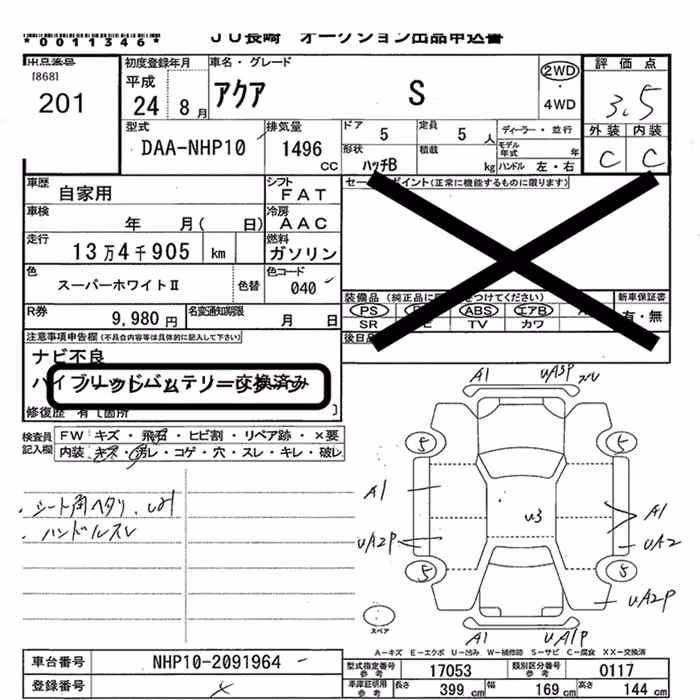 *0011346*
JU長崎 オークション出品申込書
出品番号
[868]
201
初度登録年月
平成
24 8 月
車名・グレード
アクア S
2WD
・
4WD
評価点
3.5
外装 内装
C C
型式
DAA-NHP10
排気量
1496
CC
ドア 5
定員 5 人
ディーラー・並行
形状 ハッチB
積載 kg
モデル年式 年
ハンドル 左・右
車歴
自家用
シフト
FAT
車検
年 月( 日)
冷房
AAC
走行
13万4千905 km
燃料
ガソリン
色
スーパーホワイトⅡ
色替
色コード
040
R券
9,980 円
名変通知期限
月 日
セールスポイント(正常に機能するものに限ります)
装備品(純正品に をつけてください)
新車保証書
PS ABS エアB
有・無
SR TV カワ
後日品
注意事項申告欄(不具合内容等は具体的に記入して下さい)
ナビ不良
ハイブリッドバッテリー交換済み
修復歴 有 [箇所 ]
検査員
記入欄
FW キズ・飛石・ヒビ割・リペア跡・×要
内装 キズ・汚レ・コゲ・穴・スレ・キレ・破レ
・シート角ヘタリ、
・ハンドルスレ
A1 UA3P
5 5
A1
A1
U3
UA2P
UA2
5 5
UA2P
A1 UA1P
スペア
A-キズ E-エクボ U-凹み W-補修跡 S-サビ C-腐食 XX-交換済
車台番号 NHP10-2091964
型式指定番号
参考
17053
類別区分番号
参考
0117
登録番号
車庫証明用
参考
長さ 399 cm 幅 169 cm 高さ 144 cm